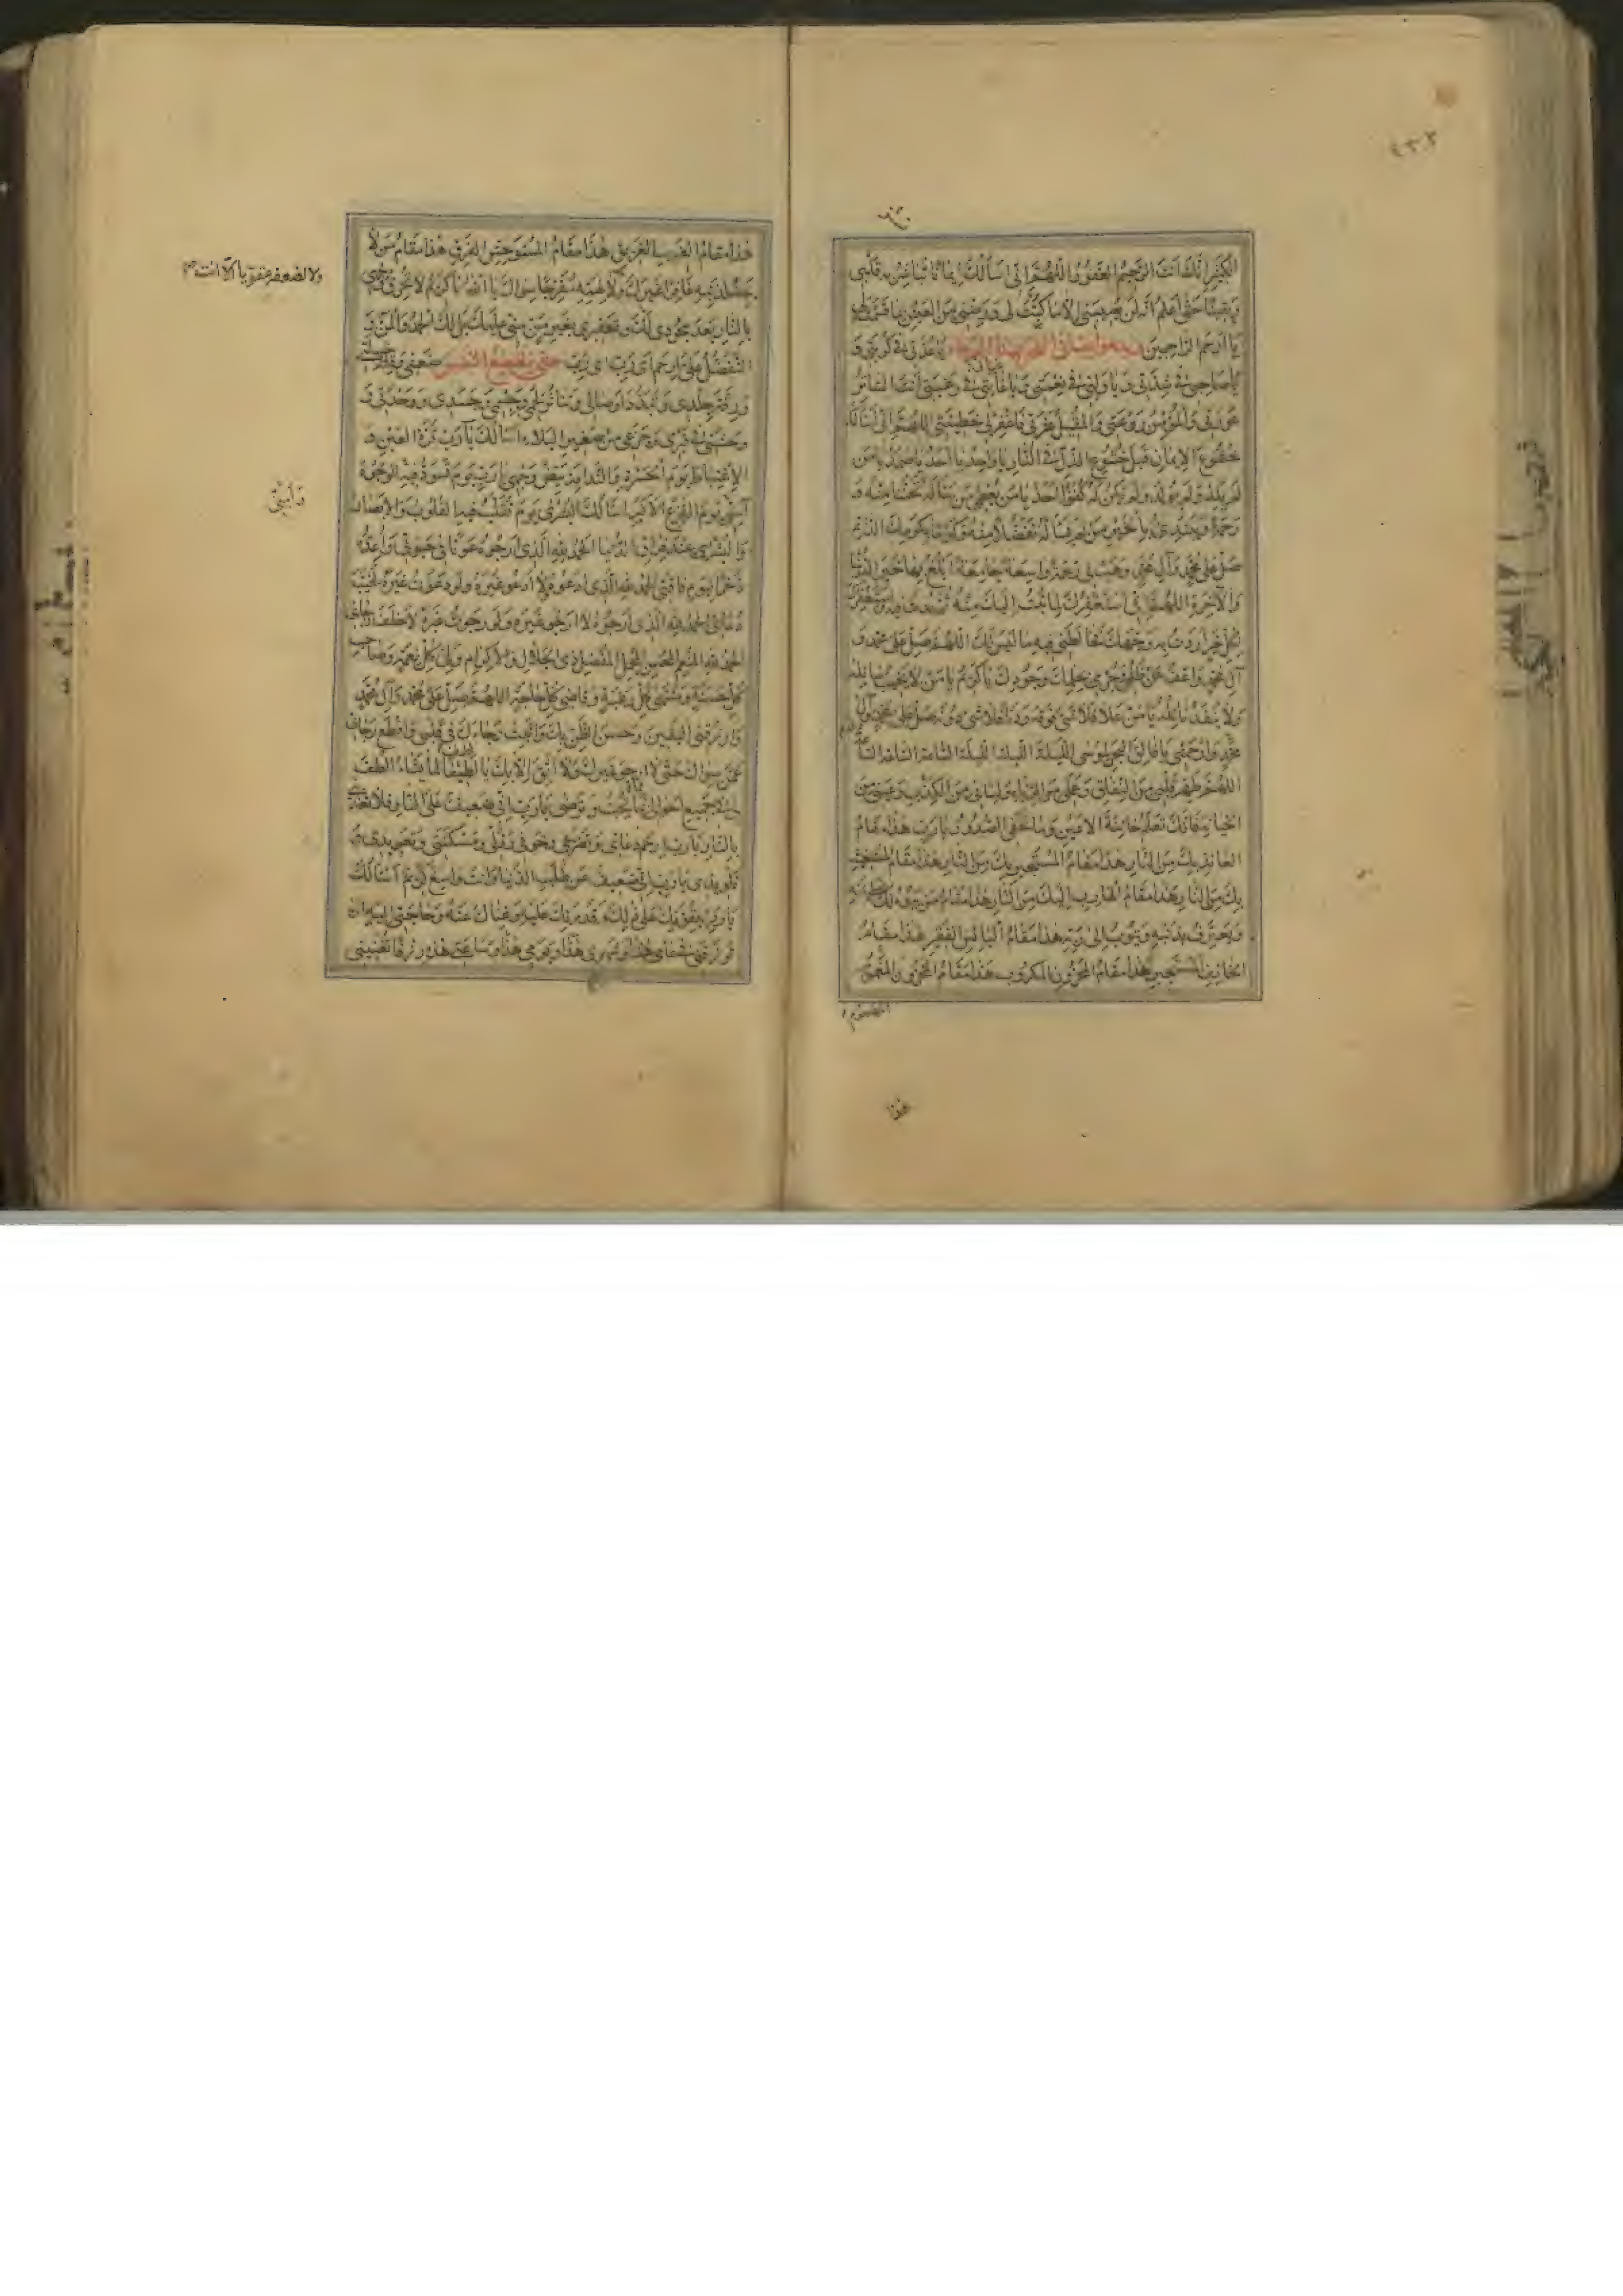 الكَثِيرَ اِنَّكَ اَنْتَ الرَّحِيمُ الغَفُورُ اَللّٰهُمَّ اِنّى اَسْاَلُكَ اِيمَانًا تُبَاشِرُ بِهِ قَلْبِى
وَيَقِينًا حَتّٰى اَعْلَمَ اَنَّهُ لَنْ يُصِيبَنِى اِلَّا مَا كَتَبْتَ لِى وَرَضِّنِى مِنَ العَيْشِ بِمَا قَسَمْتَ لِى
يَا اَرْحَمَ الرَّاحِمِينَ يَا عُدَّتِى فِى كُرْبَتِى وَ
يَا صَاحِبِى فِى شِدَّتِى وَيَا وَلِيِّى فِى نِعْمَتِى وَيَا غَايَتِى فِى رَغْبَتِى اَنْتَ السَّاتِرُ
عَوْرَتِى وَالْمُؤْمِنُ رَوْعَتِى وَالْمُقِيلُ عَثْرَتِى فَاغْفِرْ لِى خَطِيئَتِى اَللّٰهُمَّ اِنّى اَسْاَلُكَ
خُشُوعَ الْاِيمَانِ قَبْلَ خُشُوعِ الذُّلِّ فِى النَّارِ يَا وَاحِدُ يَا اَحَدُ يَا صَمَدُ يَا مَنْ
لَمْ يَلِدْ وَلَمْ يُولَدْ وَلَمْ يَكُنْ لَهُ كُفُوًا اَحَدٌ يَا مَنْ يُعْطِى مَنْ سَاَلَهُ تَحَنُّنًا مِنْهُ وَ
رَحْمَةً وَيَبْتَدِئُ بِالْخَيْرِ مَنْ لَمْ يَسْاَلْهُ تَفَضُّلًا مِنْهُ وَكَرَمًا بِكَرَمِكَ الدَّائِمِ
صَلِّ عَلَى مُحَمَّدٍ وَآلِ مُحَمَّدٍ وَهَبْ لِى رَحْمَةً وَاسِعَةً جَامِعَةً اَبْلُغُ بِهَا خَيْرَ الدُّنْيَا
وَالْآخِرَةِ اَللّٰهُمَّ اِنّى اَسْتَغْفِرُكَ لِمَا تُبْتُ اِلَيْكَ مِنْهُ ثُمَّ عُدْتُ فِيهِ وَاَسْتَغْفِرُكَ
لِكُلِّ خَيْرٍ اَرَدْتُ بِهِ وَجْهَكَ فَخَالَطَنِى فِيهِ مَا لَيْسَ لَكَ اَللّٰهُمَّ صَلِّ عَلَى مُحَمَّدٍ وَ
آلِ مُحَمَّدٍ وَاعْفُ عَنْ ظُلْمِى وَجُرْمِى بِحِلْمِكَ وَجُودِكَ يَا كَرِيمُ يَا مَنْ لَا يَخِيبُ سَائِلُهُ
وَلَا يَنْفَدُ نَائِلُهُ يَا مَنْ عَلَا فَلَا شَىْءَ فَوْقَهُ وَدَنَا فَلَا شَىْءَ دُونَهُ صَلِّ عَلَى مُحَمَّدٍ وَآلِ
مُحَمَّدٍ وَارْحَمْنِى يَا فَالِقَ الْبَحْرِ لِمُوسَى اللَّيْلَةَ اللَّيْلَةَ اللَّيْلَةَ السَّاعَةَ السَّاعَةَ السَّاعَةَ
اَللّٰهُمَّ طَهِّرْ قَلْبِى مِنَ النِّفَاقِ وَعَمَلِى مِنَ الرِّيَاءِ وَلِسَانِى مِنَ الْكَذِبِ وَعَيْنِى مِنَ
الْخِيَانَةِ فَاِنَّكَ تَعْلَمُ خَائِنَةَ الْاَعْيُنِ وَمَا تُخْفِى الصُّدُورُ يَا رَبِّ هٰذَا مَقَامُ
الْعَائِذِ بِكَ مِنَ النَّارِ هٰذَا مَقَامُ الْمُسْتَجِيرِ بِكَ مِنَ النَّارِ هٰذَا مَقَامُ الْمُسْتَغِيثِ
بِكَ مِنَ النَّارِ هٰذَا مَقَامُ الْهَارِبِ اِلَيْكَ مِنَ النَّارِ هٰذَا مَقَامُ مَنْ يَبُوءُ لَكَ بِخَطِيئَتِهِ
وَيَعْتَرِفُ بِذَنْبِهِ وَيَتُوبُ اِلَى رَبِّهِ هٰذَا مَقَامُ الْبَائِسِ الْفَقِيرِ هٰذَا مَقَامُ
الْخَائِفِ الْمُسْتَجِيرِ هٰذَا مَقَامُ الْمَحْزُونِ الْمَكْرُوبِ هٰذَا مَقَامُ الْمَحْزُونِ الْمَغْمُومِ
المهموم
هذا
هٰذَا مَقَامُ الْغَرِيبِ الْغَرِيقِ هٰذَا مَقَامُ الْمُسْتَوْحِشِ الْفَرِقِ هٰذَا مَقَامُ مَنْ لَا
يَجِدُ لِذَنْبِهِ غَافِرًا غَيْرَكَ وَلَا لِهَمِّهِ مُفَرِّجًا سِوَاكَ يَا اَللّٰهُ يَا كَرِيمُ لَا تُحْرِقْ وَجْهِى
ولا لضعفه مقويا الا انت
بِالنَّارِ بَعْدَ سُجُودِى لَكَ وَتَعْفِيرِى بِغَيْرِ مَنٍّ مِنِّى عَلَيْكَ بَلْ لَكَ الْحَمْدُ وَالْمَنُّ وَ
التَّفَضُّلُ عَلَىَّ اِرْحَمْ اَىْ رَبِّ اَىْ رَبِّ حتى ينقطع النفس ضَعْفِى وَقِلَّةَ حِيلَتِى
وَرِقَّةَ جِلْدِى وَتَبَدُّدَ اَوْصَالِى وَتَنَاثُرَ لَحْمِى وَجِسْمِى وَجَسَدِى وَوَحْدَتِى وَ
وَحْشَتِى فِى قَبْرِى وَجَزَعِى مِنْ صَغِيرِ الْبَلَاءِ اَسْاَلُكَ يَا رَبِّ قُرَّةَ الْعَيْنِ وَ
الْاِغْتِبَاطَ يَوْمَ الْحَسْرَةِ وَالنَّدَامَةِ بَيِّضْ وَجْهِى يَا رَبِّ يَوْمَ تَسْوَدُّ فِيهِ الْوُجُوهُ
آمِنِّى يَوْمَ الْفَزَعِ الْاَكْبَرِ اَسْاَلُكَ الْبُشْرَى يَوْمَ تُقَلَّبُ فِيهِ الْقُلُوبُ وَالْاَبْصَارُ
وَالْبُشْرَى عِنْدَ فِرَاقِ الدُّنْيَا الْحَمْدُ لِلّٰهِ الَّذِى اَرْجُوهُ عَوْنًا فِى حَيٰوتِى وَاُعِدُّهُ
ذُخْرًا لِيَوْمِ فَاقَتِى الْحَمْدُ لِلّٰهِ الَّذِى اَدْعُوهُ وَلَا اَدْعُو غَيْرَهُ وَلَوْ دَعَوْتُ غَيْرَهُ لَخَيَّبَ
دُعَائِى الْحَمْدُ لِلّٰهِ الَّذِى اَرْجُوهُ لَا اَرْجُو غَيْرَهُ وَلَوْ رَجَوْتُ غَيْرَهُ لَاَخْلَفَ رَجَائِى
الْحَمْدُ لِلّٰهِ الْمُنْعِمِ الْمُحْسِنِ الْمُجْمِلِ الْمُفْضِلِ ذِى الْجَلَالِ وَالْاِكْرَامِ وَلِىِّ كُلِّ نِعْمَةٍ وَصَاحِبِ
كُلِّ حَسَنَةٍ وَمُنْتَهَى كُلِّ رَغْبَةٍ وَقَاضِى كُلِّ حَاجَةٍ اَللّٰهُمَّ صَلِّ عَلَى مُحَمَّدٍ وَآلِ مُحَمَّدٍ
وَارْزُقْنِى الْيَقِينَ وَحُسْنَ الظَّنِّ بِكَ وَاَثْبِتْ رَجَاءَكَ فِى قَلْبِى وَاقْطَعْ رَجَائِى
عَمَّنْ سِوَاكَ حَتّٰى لَا اَرْجُوَ غَيْرَكَ وَلَا اَثِقَ اِلَّا بِكَ يَا لَطِيفًا لِمَا يَشَاءُ الْطُفْ
لِى فِى جَمِيعِ اَحْوَالِى بِمَا تُحِبُّ وَتَرْضَى يَا رَبِّ اِنّى ضَعِيفٌ عَلَى النَّارِ فَلَا تُعَذِّبْنِى
بِالنَّارِ يَا رَبِّ اِرْحَمْ دُعَائِى وَتَضَرُّعِى وَخَوْفِى وَذُلِّى وَمَسْكَنَتِى وَتَعْوِيذِى وَ
تَلْوِيذِى يَا رَبِّ اِنّى ضَعِيفٌ عَنْ طَلَبِ الدُّنْيَا وَاَنْتَ وَاسِعٌ كَرِيمٌ اَسْاَلُكَ
يَا رَبِّ بِقُوَّتِكَ عَلَى ذٰلِكَ وَقُدْرَتِكَ عَلَيْهِ وَغِنَاكَ عَنْهُ وَحَاجَتِى اِلَيْهِ اَنْ
تَرْزُقَنِى فِى عَامِى هٰذَا وَشَهْرِى هٰذَا وَيَوْمِى هٰذَا وَسَاعَتِى هٰذِهِ رِزْقًا تُغْنِينِى